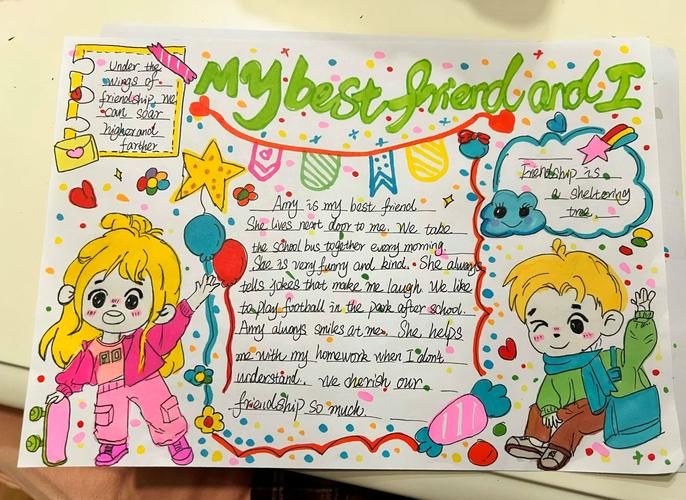 My best friend and I
Under the
wings of
friendship, we
can soar
higher and
farther
Friendship is
a sheltering
tree.
Amy is my best friend
She lives next door to me. We take
the school bus together every morning.
She is very funny and kind. She always
tells jokes that make me laugh. We like
to play football in the park after school.
Amy always smiles at me. She helps
me with my homework when I don't
understand. We cherish our
friendship so much.